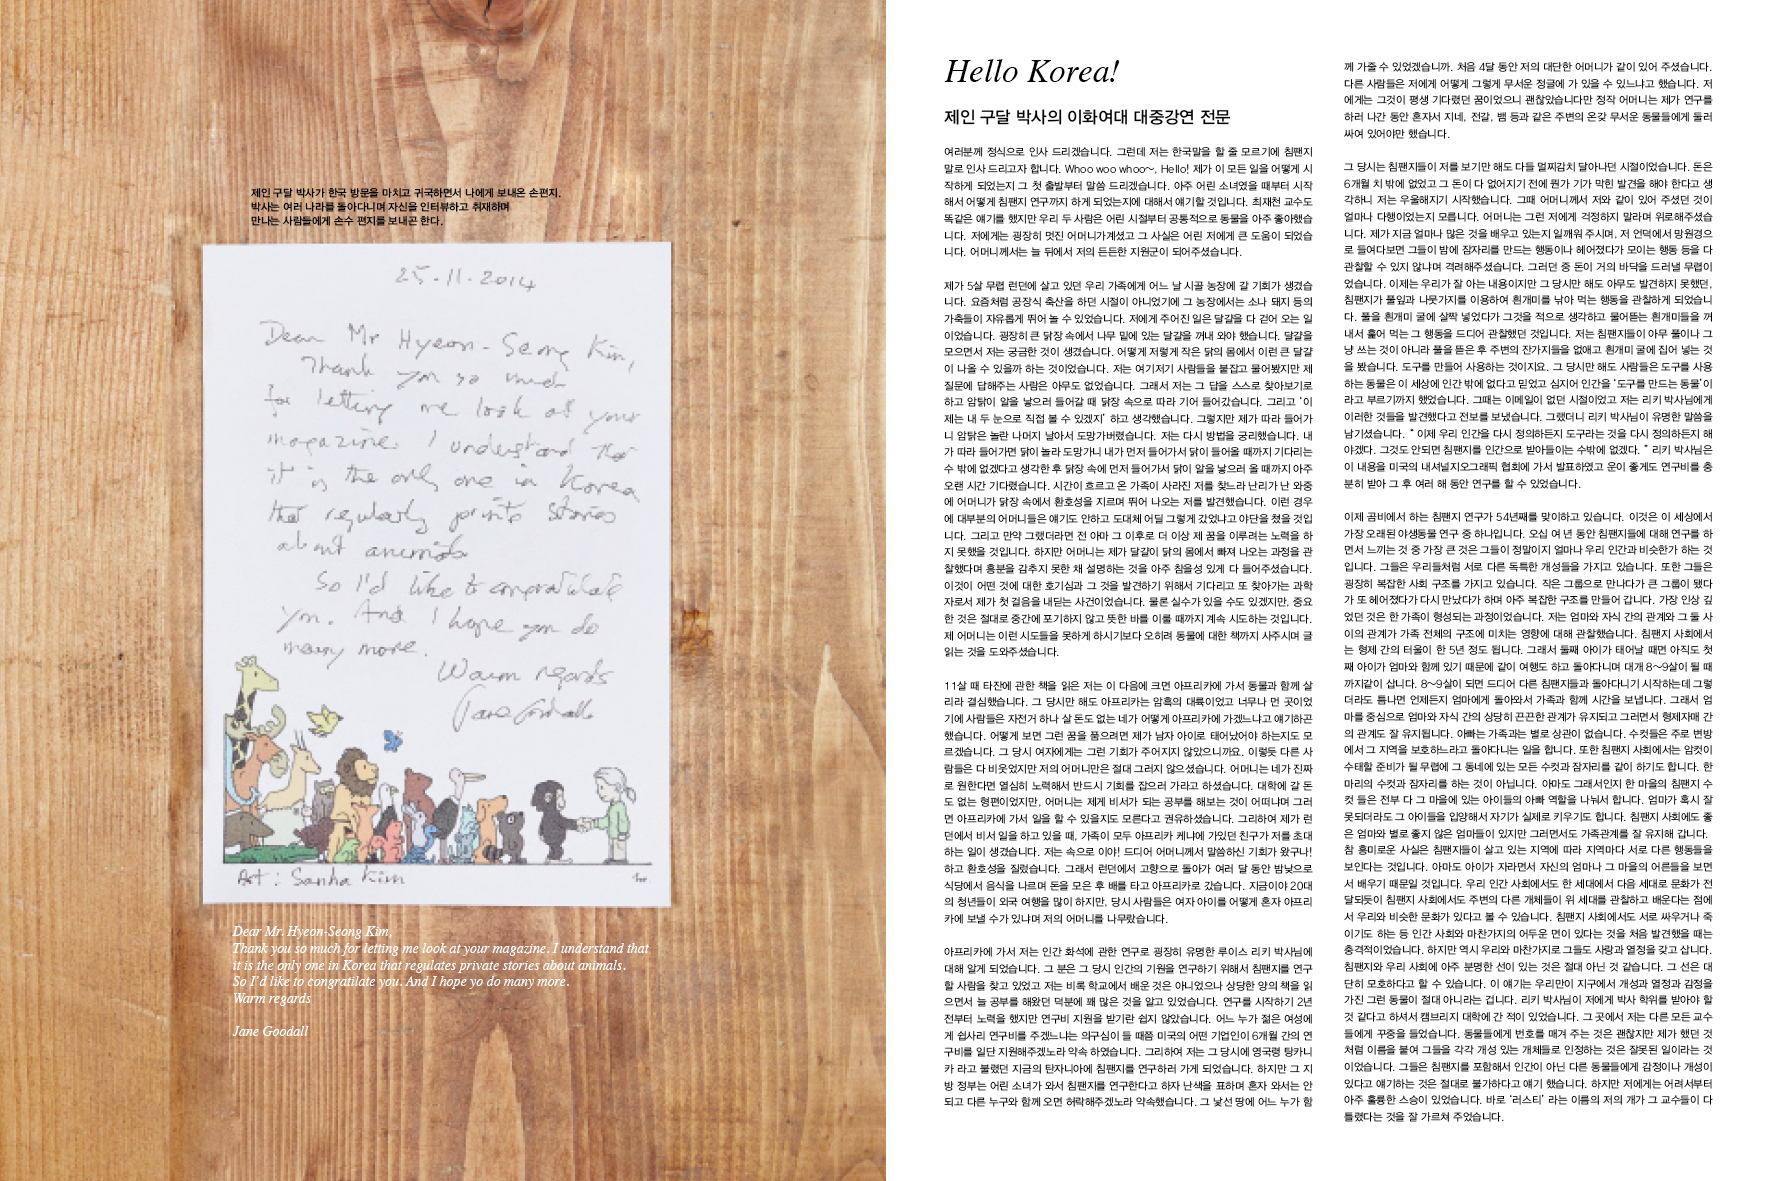 제인 구달 박사가 한국 방문을 마치고 귀국하면서 나에게 보내온 손편지.
박사는 여러 나라를 돌아다니며 자신을 인터뷰하고 취재하며
만나는 사람들에게 손수 편지를 보내곤 한다.
25-11-2014
Dear Mr Hyeon-Seong Kim,
Thank you so much
for letting me look at your
magazine. I understand that
it is the only one in Korea
that regularly prints stories
about animals
So I'd like to congratulate
you. And I hope you do
many more.
Warm regards
Jane Goodall
Art : Sanha Kim
Dear Mr. Hyeon-Seong Kim,
Thank you so much for letting me look at your magazine. I understand that
it is the only one in Korea that regulates private stories about animals.
So I'd like to congratilate you. And I hope yo do many more.
Warm regards
Jane Goodall
Hello Korea!
제인 구달 박사의 이화여대 대중강연 전문
여러분께 정식으로 인사 드리겠습니다. 그런데 저는 한국말을 할 줄 모르기에 침팬지
말로 인사 드리고자 합니다. Whoo woo whoo~, Hello! 제가 이 모든 일을 어떻게 시
작하게 되었는지 그 첫 출발부터 말씀 드리겠습니다. 아주 어린 소녀였을 때부터 시작
해서 어떻게 침팬지 연구까지 하게 되었는지에 대해서 얘기할 것입니다. 최재천 교수도
똑같은 얘기를 했지만 우리 두 사람은 어린 시절부터 공통적으로 동물을 아주 좋아했습
니다. 저에게는 굉장히 멋진 어머니가계셨고 그 사실은 어린 저에게 큰 도움이 되었습
니다. 어머니께서는 늘 뒤에서 저의 든든한 지원군이 되어주셨습니다.
제가 5살 무렵 런던에 살고 있던 우리 가족에게 어느 날 시골 농장에 갈 기회가 생겼습
니다. 요즘처럼 공장식 축산을 하던 시절이 아니었기에 그 농장에서는 소나 돼지 등의
가축들이 자유롭게 뛰어 놀 수 있었습니다. 저에게 주어진 일은 달걀을 다 걷어 오는 일
이었습니다. 굉장히 큰 닭장 속에서 나무 밑에 있는 달걀을 꺼내 와야 했습니다. 달걀을
모으면서 저는 궁금한 것이 생겼습니다. 어떻게 저렇게 작은 닭의 몸에서 이런 큰 달걀
이 나올 수 있을까 하는 것이었습니다. 저는 여기저기 사람들을 붙잡고 물어봤지만 제
질문에 답해주는 사람은 아무도 없었습니다. 그래서 저는 그 답을 스스로 찾아보기로
하고 암탉이 알을 낳으러 들어갈 때 닭장 속으로 따라 기어 들어갔습니다. 그리고 ‘이
제는 내 두 눈으로 직접 볼 수 있겠지’ 하고 생각했습니다. 그렇지만 제가 따라 들어가
니 암탉은 놀란 나머지 날아서 도망가버렸습니다. 저는 다시 방법을 궁리했습니다. 내
가 따라 들어가면 닭이 놀라 도망가니 내가 먼저 들어가서 닭이 들어올 때까지 기다리는
수 밖에 없겠다고 생각한 후 닭장 속에 먼저 들어가서 닭이 알을 낳으러 올 때까지 아주
오랜 시간 기다렸습니다. 시간이 흐르고 온 가족이 사라진 저를 찾느라 난리가 난 와중
에 어머니가 닭장 속에서 환호성을 지르며 뛰어 나오는 저를 발견했습니다. 이런 경우
에 대부분의 어머니들은 얘기도 안하고 도대체 어딜 그렇게 갔었냐고 야단을 쳤을 것입
니다. 그리고 만약 그랬더라면 전 아마 그 이후로 더 이상 제 꿈을 이루려는 노력을 하
지 못했을 것입니다. 하지만 어머니는 제가 달걀이 닭의 몸에서 빠져 나오는 과정을 관
찰했다며 흥분을 감추지 못한 채 설명하는 것을 아주 참을성 있게 다 들어주셨습니다.
이것이 어떤 것에 대한 호기심과 그 것을 발견하기 위해서 기다리고 또 찾아가는 과학
자로서 제가 첫 걸음을 내딛는 사건이었습니다. 물론 실수가 있을 수도 있겠지만, 중요
한 것은 절대로 중간에 포기하지 않고 뜻한 바를 이룰 때까지 계속 시도하는 것입니다.
제 어머니는 이런 시도들을 못하게 하시기보다 오히려 동물에 대한 책까지 사주시며 글
읽는 것을 도와주셨습니다.
11살 때 타잔에 관한 책을 읽은 저는 이 다음에 크면 아프리카에 가서 동물과 함께 살
리라 결심했습니다. 그 당시만 해도 아프리카는 암흑의 대륙이었고 너무나 먼 곳이었
기에 사람들은 자전거 하나 살 돈도 없는 네가 어떻게 아프리카에 가겠느냐고 얘기하곤
했습니다. 어떻게 보면 그런 꿈을 품으려면 제가 남자 아이로 태어났어야 하는지도 모
르겠습니다. 그 당시 여자에게는 그런 기회가 주어지지 않았으니까요. 이렇듯 다른 사
람들은 다 비웃었지만 저의 어머니만은 절대 그러지 않으셨습니다. 어머니는 네가 진짜
로 원한다면 열심히 노력해서 반드시 기회를 잡으러 가라고 하셨습니다. 대학에 갈 돈
도 없는 형편이었지만, 어머니는 제게 비서가 되는 공부를 해보는 것이 어떠냐며 그러
면 아프리카에 가서 일을 할 수 있을지도 모른다고 권유하셨습니다. 그리하여 제가 런
던에서 비서 일을 하고 있을 때, 가족이 모두 아프리카 케냐에 가있던 친구가 저를 초대
하는 일이 생겼습니다. 저는 속으로 이야! 드디어 어머니께서 말씀하신 기회가 왔구나!
하고 환호성을 질렀습니다. 그래서 런던에서 고향으로 돌아가 여러 달 동안 밤낮으로
식당에서 음식을 나르며 돈을 모은 후 배를 타고 아프리카로 갔습니다. 지금이야 20대
의 청년들이 외국 여행을 많이 하지만, 당시 사람들은 여자 아이를 어떻게 혼자 아프리
카에 보낼 수가 있냐며 저의 어머니를 나무랐습니다.
아프리카에 가서 저는 인간 화석에 관한 연구로 굉장히 유명한 루이스 리키 박사님에
대해 알게 되었습니다. 그 분은 그 당시 인간의 기원을 연구하기 위해서 침팬지를 연구
할 사람을 찾고 있었고 저는 비록 학교에서 배운 것은 아니었으나 상당한 양의 책을 읽
으면서 늘 공부를 해왔던 덕분에 꽤 많은 것을 알고 있었습니다. 연구를 시작하기 2년
전부터 노력을 했지만 연구비 지원을 받기란 쉽지 않았습니다. 어느 누가 젊은 여성에
게 쉽사리 연구비를 주겠느냐는 의구심이 들 때쯤 미국의 어떤 기업인이 6개월 간의 연
구비를 일단 지원해주겠노라 약속 하였습니다. 그리하여 저는 그 당시에 영국령 탕카니
카 라고 불렸던 지금의 탄자니아에 침팬지를 연구하러 가게 되었습니다. 하지만 그 지
방 정부는 어린 소녀가 와서 침팬지를 연구한다고 하자 난색을 표하며 혼자 와서는 안
되고 다른 누구와 함께 오면 허락해주겠노라 약속했습니다. 그 낯선 땅에 어느 누가 함
께 가줄 수 있었겠습니까. 처음 4달 동안 저의 대단한 어머니가 같이 있어 주셨습니다.
다른 사람들은 저에게 어떻게 그렇게 무서운 정글에 가 있을 수 있느냐고 했습니다. 저
에게는 그것이 평생 기다렸던 꿈이었으니 괜찮았습니다만 정작 어머니는 제가 연구를
하러 나간 동안 혼자서 지네, 전갈, 뱀 등과 같은 주변의 온갖 무서운 동물들에게 둘러
싸여 있어야만 했습니다.
그 당시는 침팬지들이 저를 보기만 해도 다들 멀찌감치 달아나던 시절이었습니다. 돈은
6개월 치 밖에 없었고 그 돈이 다 없어지기 전에 뭔가 기가 막힌 발견을 해야 한다고 생
각하니 저는 우울해지기 시작했습니다. 그때 어머니께서 저와 같이 있어 주셨던 것이
얼마나 다행이었는지 모릅니다. 어머니는 그런 저에게 걱정하지 말라며 위로해주셨습
니다. 제가 지금 얼마나 많은 것을 배우고 있는지 일깨워 주시며, 저 언덕에서 망원경으
로 들여다보면 그들이 밤에 잠자리를 만드는 행동이나 헤어졌다가 모이는 행동 등을 다
관찰할 수 있지 않냐며 격려해주셨습니다. 그러던 중 돈이 거의 바닥을 드러낼 무렵이
었습니다. 이제는 우리가 잘 아는 내용이지만 그 당시만 해도 아무도 발견하지 못했던,
침팬지가 풀잎과 나뭇가지를 이용하여 흰개미를 낚아 먹는 행동을 관찰하게 되었습니
다. 풀을 흰개미 굴에 살짝 넣었다가 그것을 적으로 생각하고 물어뜯는 흰개미들을 꺼
내서 훑어 먹는 그 행동을 드디어 관찰했던 것입니다. 저는 침팬지들이 아무 풀이나 그
냥 쓰는 것이 아니라 풀을 뜯은 후 주변의 잔가지들을 없애고 흰개미 굴에 집어 넣는 것
을 봤습니다. 도구를 만들어 사용하는 것이지요. 그 당시만 해도 사람들은 도구를 사용
하는 동물은 이 세상에 인간 밖에 없다고 믿었고 심지어 인간을 ‘도구를 만드는 동물’이
라고 부르기까지 했었습니다. 그때는 이메일이 없던 시절이었고 저는 리키 박사님에게
이러한 것들을 발견했다고 전보를 보냈습니다. 그랬더니 리키 박사님이 유명한 말씀을
남기셨습니다. “ 이제 우리 인간을 다시 정의하든지 도구라는 것을 다시 정의하든지 해
야겠다. 그것도 안되면 침팬지를 인간으로 받아들이는 수밖에 없겠다. ” 리키 박사님은
이 내용을 미국의 내셔널지오그래픽 협회에 가서 발표하였고 운이 좋게도 연구비를 충
분히 받아 그 후 여러 해 동안 연구를 할 수 있었습니다.
이제 곰비에서 하는 침팬지 연구가 54년째를 맞이하고 있습니다. 이것은 이 세상에서
가장 오래된 야생동물 연구 중 하나입니다. 오십 여 년 동안 침팬지들에 대해 연구를 하
면서 느끼는 것 중 가장 큰 것은 그들이 정말이지 얼마나 우리 인간과 비슷한가 하는 것
입니다. 그들은 우리들처럼 서로 다른 독특한 개성들을 가지고 있습니다. 또한 그들은
굉장히 복잡한 사회 구조를 가지고 있습니다. 작은 그룹으로 만나다가 큰 그룹이 됐다
가 또 헤어졌다가 다시 만났다가 하며 아주 복잡한 구조를 만들어 갑니다. 가장 인상 깊
었던 것은 한 가족이 형성되는 과정이었습니다. 저는 엄마와 자식 간의 관계와 그 둘 사
이의 관계가 가족 전체의 구조에 미치는 영향에 대해 관찰했습니다. 침팬지 사회에서
는 형제 간의 터울이 한 5년 정도 됩니다. 그래서 둘째 아이가 태어날 때면 아직도 첫
째 아이가 엄마와 함께 있기 때문에 같이 여행도 하고 돌아다니며 대개 8~9살이 될 때
까지같이 삽니다. 8~9살이 되면 드디어 다른 침팬지들과 돌아다니기 시작하는데 그렇
더라도 틈나면 언제든지 엄마에게 돌아와서 가족과 함께 시간을 보냅니다. 그래서 엄
마를 중심으로 엄마와 자식 간의 상당히 끈끈한 관계가 유지되고 그러면서 형제자매 간
의 관계도 잘 유지됩니다. 아빠는 가족과는 별로 상관이 없습니다. 수컷들은 주로 변방
에서 그 지역을 보호하느라고 돌아다니는 일을 합니다. 또한 침팬지 사회에서는 암컷이
수태할 준비가 될 무렵에 그 동네에 있는 모든 수컷과 잠자리를 같이 하기도 합니다. 한
마리의 수컷과 잠자리를 하는 것이 아닙니다. 아마도 그래서인지 한 마을의 침팬지 수
컷 들은 전부 다 그 마을에 있는 아이들의 아빠 역할을 나눠서 합니다. 엄마가 혹시 잘
못되더라도 그 아이들을 입양해서 자기가 실제로 키우기도 합니다. 침팬지 사회에도 좋
은 엄마와 별로 좋지 않은 엄마들이 있지만 그러면서도 가족관계를 잘 유지해 갑니다.
참 흥미로운 사실은 침팬지들이 살고 있는 지역에 따라 지역마다 서로 다른 행동들을
보인다는 것입니다. 아마도 아이가 자라면서 자신의 엄마나 그 마을의 어른들을 보면
서 배우기 때문일 것입니다. 우리 인간 사회에서도 한 세대에서 다음 세대로 문화가 전
달되듯이 침팬지 사회에서도 주변의 다른 개체들이 위 세대를 관찰하고 배운다는 점에
서 우리와 비슷한 문화가 있다고 볼 수 있습니다. 침팬지 사회에서도 서로 싸우거나 죽
이기도 하는 등 인간 사회와 마찬가지의 어두운 면이 있다는 것을 처음 발견했을 때는
충격적이었습니다. 하지만 역시 우리와 마찬가지로 그들도 사랑과 열정을 갖고 삽니다.
침팬지와 우리 사회에 아주 분명한 선이 있는 것은 절대 아닌 것 같습니다. 그 선은 대
단히 모호하다고 할 수 있습니다. 이 얘기는 우리만이 지구에서 개성과 열정과 감정을
가진 그런 동물이 절대 아니라는 겁니다. 리키 박사님이 저에게 박사 학위를 받아야 할
것 같다고 하셔서 캠브리지 대학에 간 적이 있었습니다. 그 곳에서 저는 다른 모든 교수
들에게 꾸중을 들었습니다. 동물들에게 번호를 매겨 주는 것은 괜찮지만 제가 했던 것
처럼 이름을 붙여 그들을 각각 개성 있는 개체들로 인정하는 것은 잘못된 일이라는 것
이었습니다. 그들은 침팬지를 포함해서 인간이 아닌 다른 동물들에게 감정이나 개성이
있다고 얘기하는 것은 절대로 불가하다고 얘기 했습니다. 하지만 저에게는 어려서부터
아주 훌륭한 스승이 있었습니다. 바로 ‘러스티’ 라는 이름의 저의 개가 그 교수들이 다
틀렸다는 것을 잘 가르쳐 주었습니다.